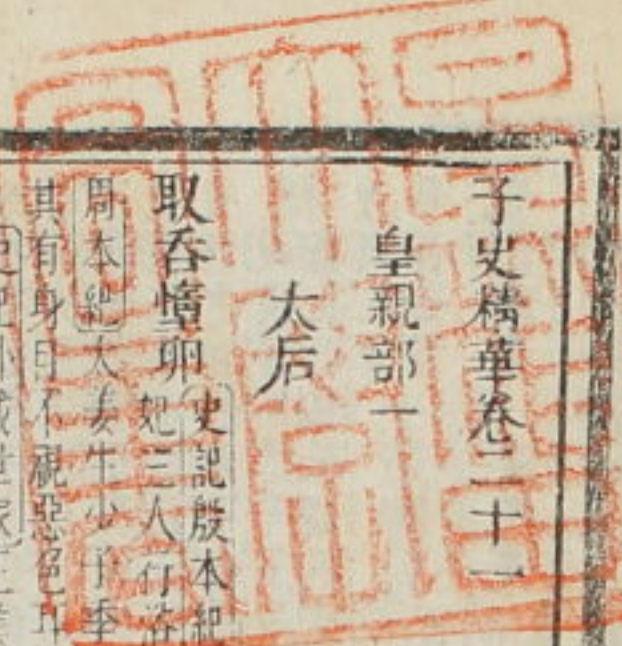 子史精華卷二十一
皇親部一
太后
取吞墮卵
史記殷本紀
妃三人行浴
周本紀太姜生少子季
其有身目不視惡色耳